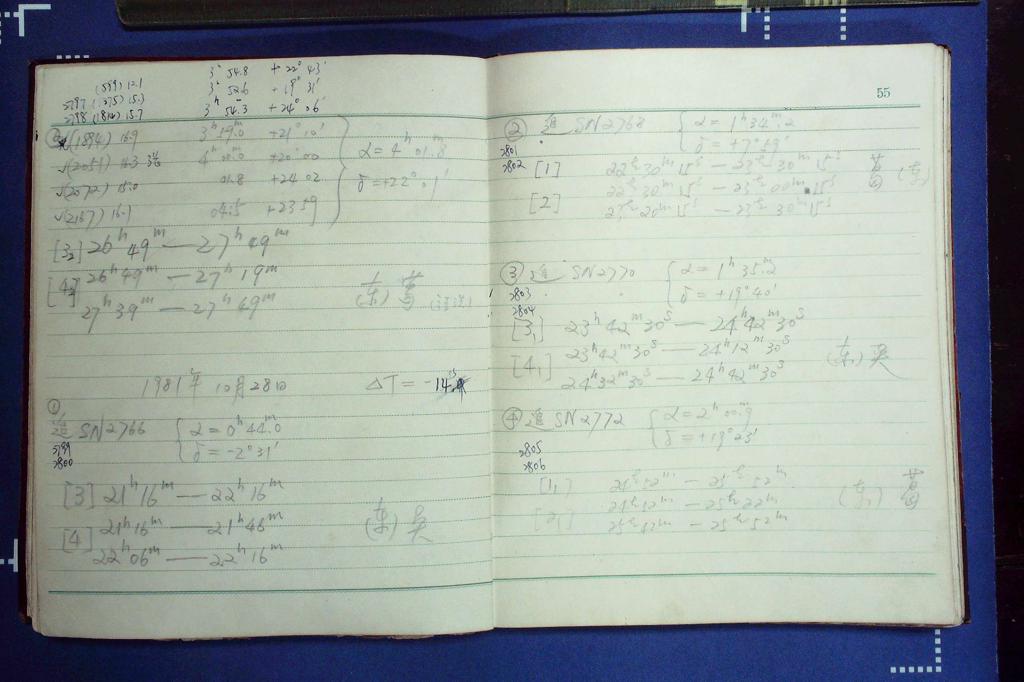 (599) 12.1 3ʰ 54.8 +22° 43′
2797 (1275) 15.3 3ʰ 52.6 +19° 31′
2798 (1814) 15.7 3ʰ 54.3 +24° 06′
(1894) 16.9 3ʰ19.0 +21° 10′
√(2051) 14.3 4ʰ00.0 +20°00
√(2072) 15.0 01.8 +24 02
√(2167) 16.1 04.5 +23 59
α=4ʰ01.8
δ=+22°01′
[3₂] 26ʰ49ᵐ—27ʰ49ᵐ
[4₂] 26ʰ49ᵐ—27ʰ19ᵐ
27ʰ39ᵐ—27ʰ49ᵐ
(东) 葛
1981年 10月28日 ΔT=-14
①
追 SN2766 α=0ʰ44ᵐ.0
2799 δ=-2°31′
2800
[3] 21ʰ16ᵐ—22ʰ16ᵐ
[4] 21ʰ16ᵐ—21ʰ46ᵐ
22ʰ06ᵐ—22ʰ16ᵐ
(东) 吴
55
② 追 SN2768 α=1ʰ34ᵐ.2
2801 δ=+7°59′
2802
[1] 22ʰ30ᵐ15ˢ—23ʰ30ᵐ15ˢ
[2] 22ʰ30ᵐ15ˢ—23ʰ00ᵐ15ˢ
23ʰ20ᵐ15ˢ—23ʰ30ᵐ15ˢ
葛 (东)
③ 追 SN2770 α=1ʰ35ᵐ.2
2803 δ=+19°40′
2804
[3₁] 23ʰ42ᵐ30ˢ—24ʰ42ᵐ30ˢ
[4₁] 23ʰ42ᵐ30ˢ—24ʰ12ᵐ30ˢ
24ʰ32ᵐ30ˢ—24ʰ42ᵐ30ˢ
(东) 吴
④ 追 SN2772 α=2ʰ00ᵐ.9
δ=+19°23′
2805
2806
[1₁] 24ʰ52ᵐ—25ʰ52ᵐ
[2₁] 24ʰ52ᵐ—25ʰ22ᵐ
25ʰ42ᵐ—25ʰ52ᵐ
(东) 葛